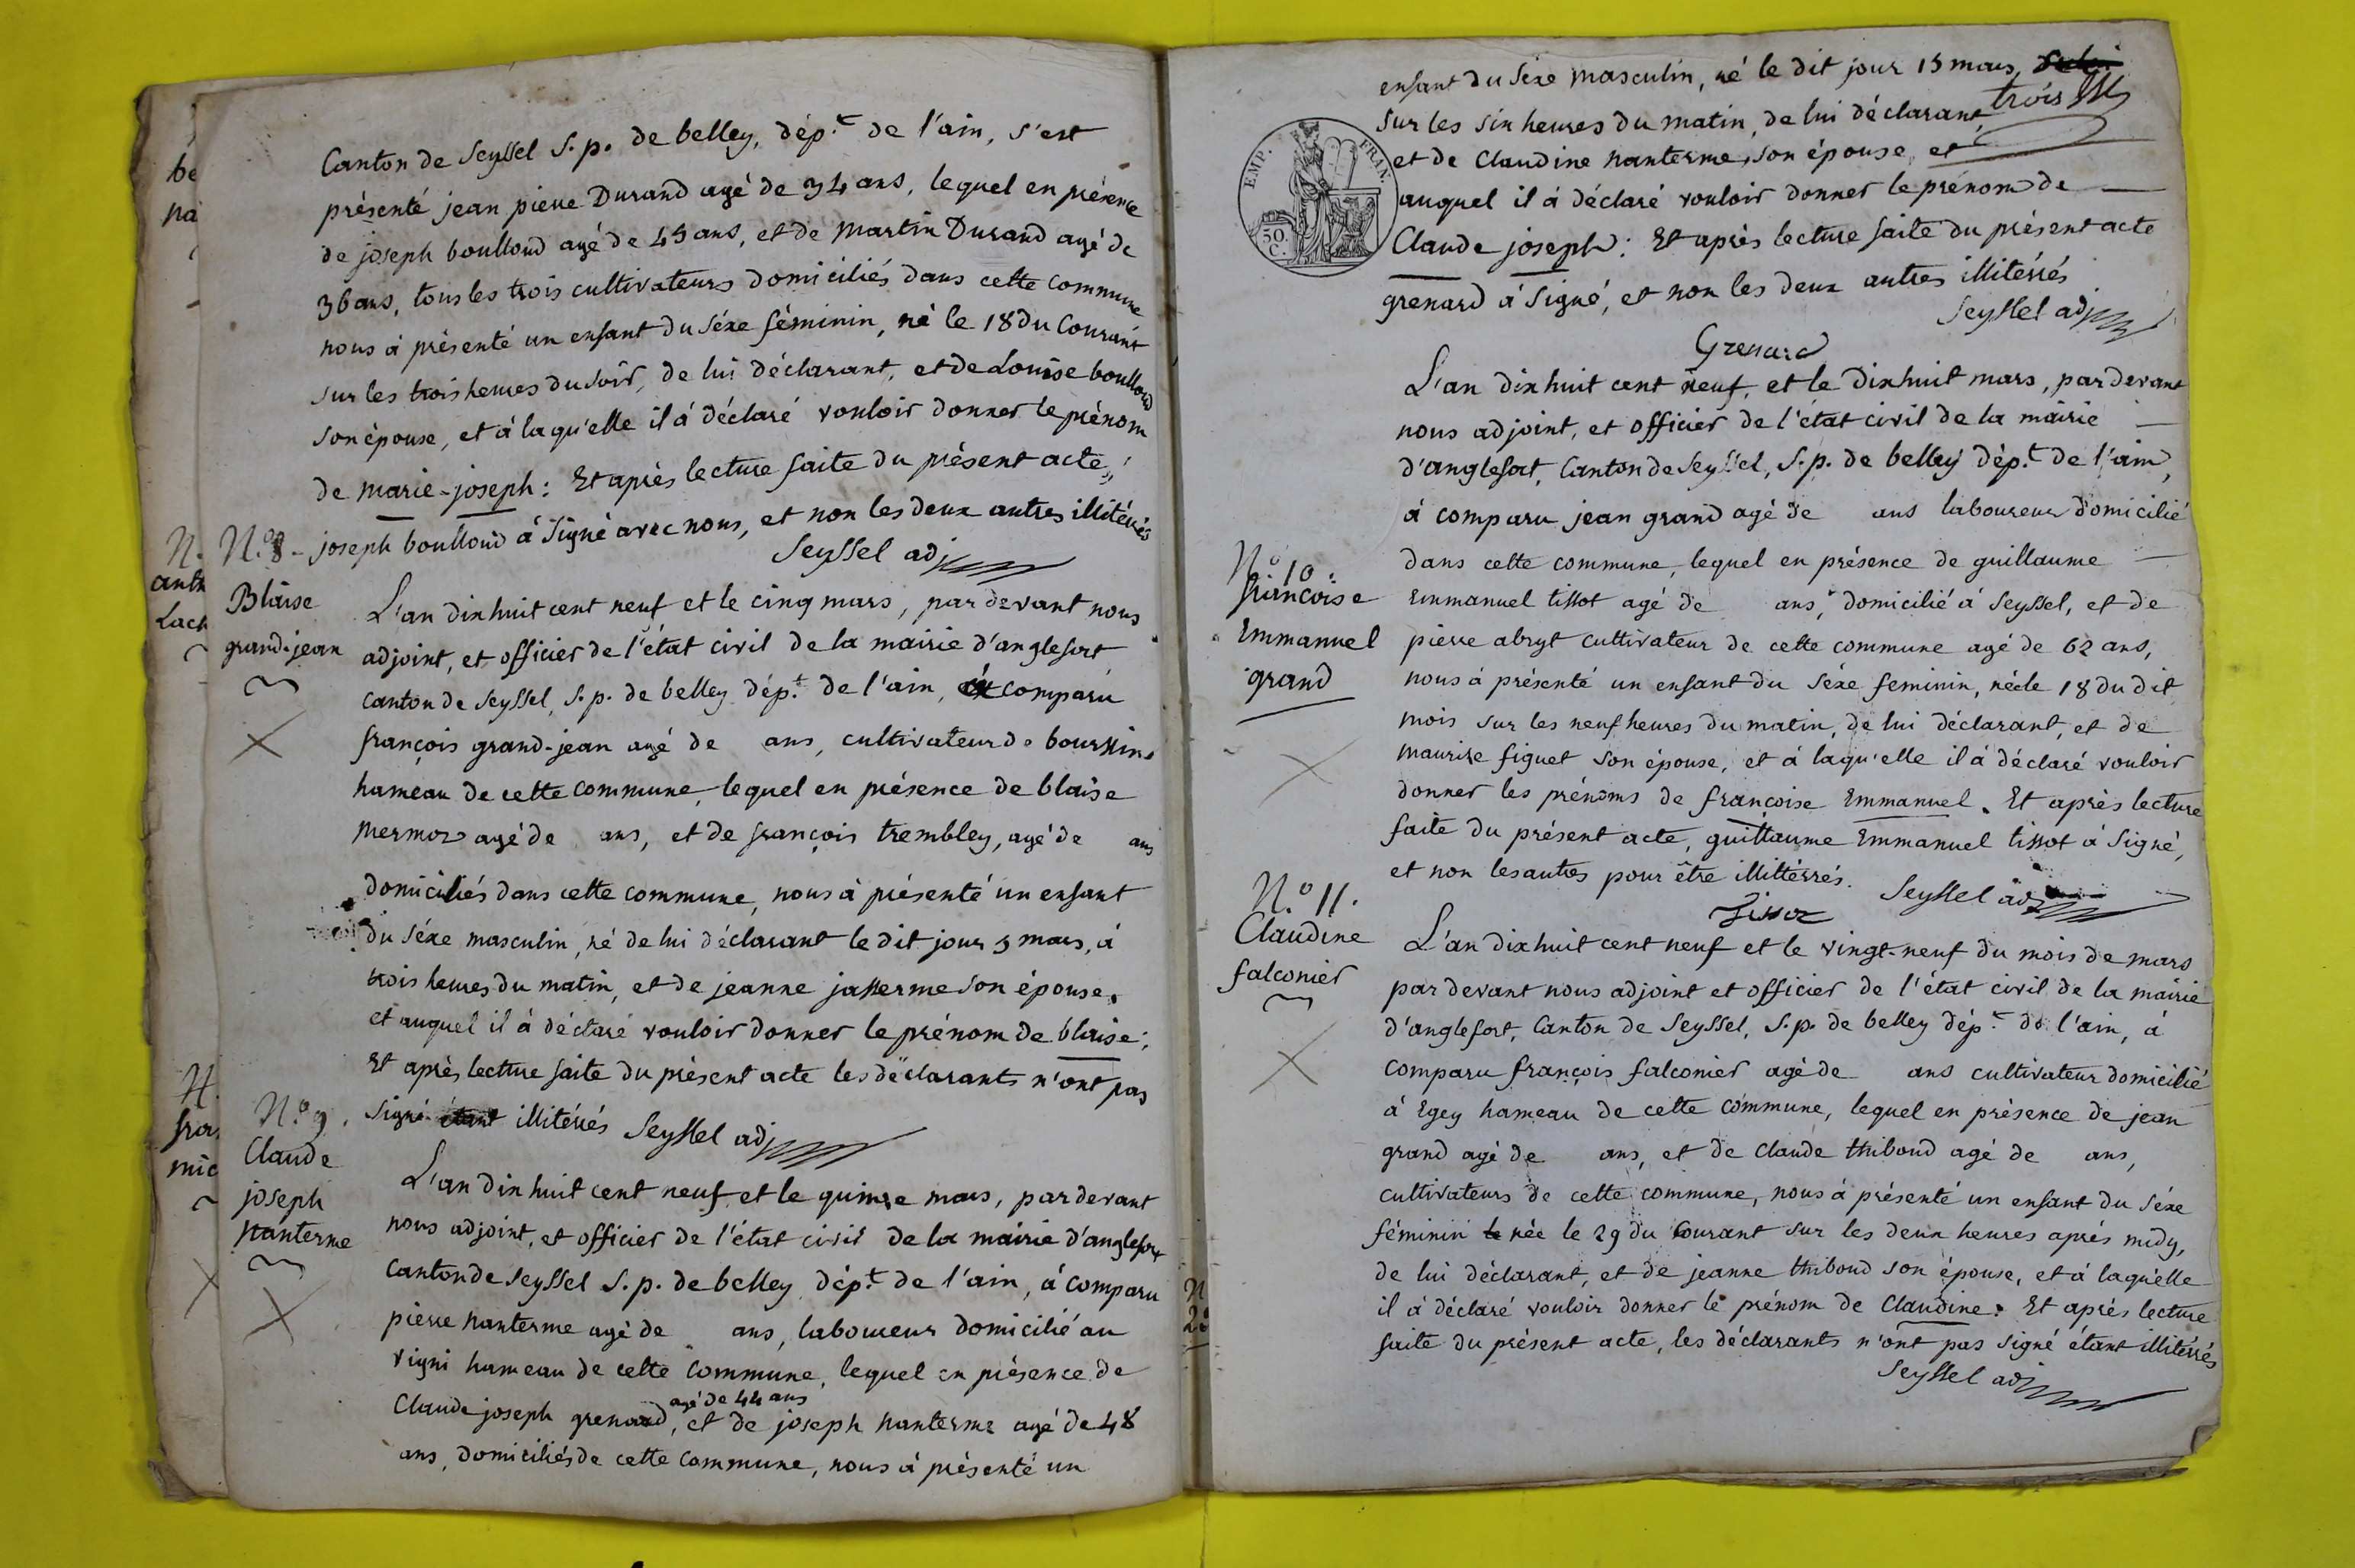 be
pa
Canton de Seyssel S. p. de belley, dép.t de l'ain, s'est
présenté jean pierre Durand agé de 34 ans, lequel en présence
de joseph boulloud agé de 45 ans, et de Martin Durand agé de
36 ans, tous les trois cultivateurs domiciliés dans cette commune
nous à présenté un enfant du séxe féminin, né le 18 du Courant
sur les trois heures du soir, de lui déclarant, et de Louise boulloud
son épouse, et à laqu'elle il à déclaré vouloir donner le prénom
de marie-joseph: Et après lecture faite du présent acte,
joseph boulloud à signé avec nous, et non les deux autres illitérés
Seyssel adj
N.
anth
Lach
N.o 8
Blaise
grand-jean
L'an dixhuit cent neuf et le cinq mars, par devant nous
adjoint, et officier de l'état civil de la mairie d'anglefort
canton de seyssel, S. p. de belley dép.t de l'ain, à comparu
françois grand-jean agé de ans, cultivateur de bourssin
hameau de cette commune, lequel en présence de blaise
mermoz agé de ans, et de françois trembley, agé de ans
domiciliés dans cette commune, nous à présenté un enfant
du séxe masculin, né de lui déclarant le dit jour 5 mars, à
trois heures du matin, et de jeanne jasserme son épouse,
et auquel il à déclaré vouloir donner le prénom de blaise;
Et après lecture faite du présent acte les déclarants n'ont pas
signé étant illitérés Seyssel adj
fra
mic
N.o 9.
Claude
joseph
nanterme
L'an dix huit cent neuf et le quinze mars, par devant
nous adjoint, et officier de l'état civil de la mairie d'anglefort
Canton de Seyssel S. p. de belley dép.t de l'ain, à comparu
pierre nanterme agé de ans, laboureur domicilié au
vigni hameau de cette commune, lequel en présence de
agé de 44 ans
Claude joseph grenard, et de joseph nanterme agé de 48
ans, domiciliés de cette commune, nous à présenté un
enfant du séxe masculin, né le dit jour 15 mars,
trois
sur les six heures du matin, de lui déclarant
et de Claudine nanterme, son épouse, et
auquel il à déclaré vouloir donner le prénom de
Claude joseph: Et après lecture faite du présent acte
grenard à signé, et non les deux autres illitérés
Seyssel adj
Grenard
EMP. FRAN.
50 C.
L'an dixhuit cent neuf, et le dixhuit mars, par devant
nous adjoint, et officier de l'état civil de la mairie
d'anglefort, Canton de Seyssel, S. p. de belley dép.t de l'ain,
à comparu jean grand agé de ans laboureur domicilié
dans cette commune, lequel en présence de guillaume
Emmanuel tissot agé de ans, domicilié à Seyssel, et de
pierre abryt cultivateur de cette commune agé de 62 ans,
nous à présenté un enfant du séxe feminin, née le 18 du dit
mois sur les neuf heures du matin, de lui déclarant, et de
maurise figuet son épouse, et à laqu'elle il à déclaré vouloir
donner les prénoms de françoise Emmanuel. Et après lecture
faite du présent acte, guillaume Emmanuel tissot à signé,
et non les autres pour être illittérés. Seyssel adj
Tissot
N.o 10.
françoise
Emmanuel
grand
N.o 11.
Claudine
falconier
L'an dixhuit cent neuf et le vingt-neuf du mois de mars
par devant nous adjoint et officier de l'état civil de la mairie
d'anglefort, Canton de Seyssel, S. p. de belley dép.t de l'ain, à
comparu françois falconier agé de ans cultivateur domicilié
à Egey hameau de cette commune, lequel en présence de jean
grand agé de ans, et de Claude thiboud agé de ans,
cultivateurs de cette commune, nous à présenté un enfant du séxe
féminin née le 29 du Courant sur les deux heures après midy,
de lui déclarant, et de jeanne thiboud son épouse, et à laqu'elle
il à déclaré vouloir donner le prénom de Claudine. Et après lecture
faite du présent acte, les déclarants n'ont pas signé étant illitérés
Seyssel adj